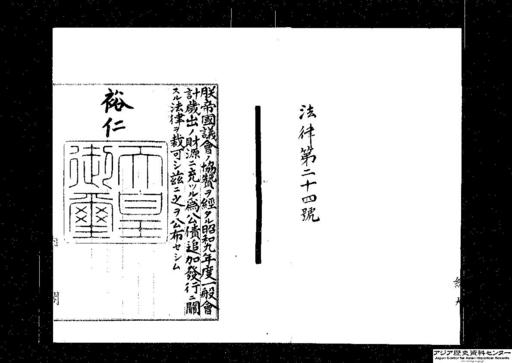 法律第二十四號
朕帝國議會ノ協贊ヲ經タル昭和九年度一般會
計歲出ノ財源ニ充ツル爲公債追加發行ニ關
スル法律ヲ裁可シ茲ニ之ヲ公布セシム
裕仁
天皇
御璽
アジア歴史資料センター
Japan Center for Asian Historical Records